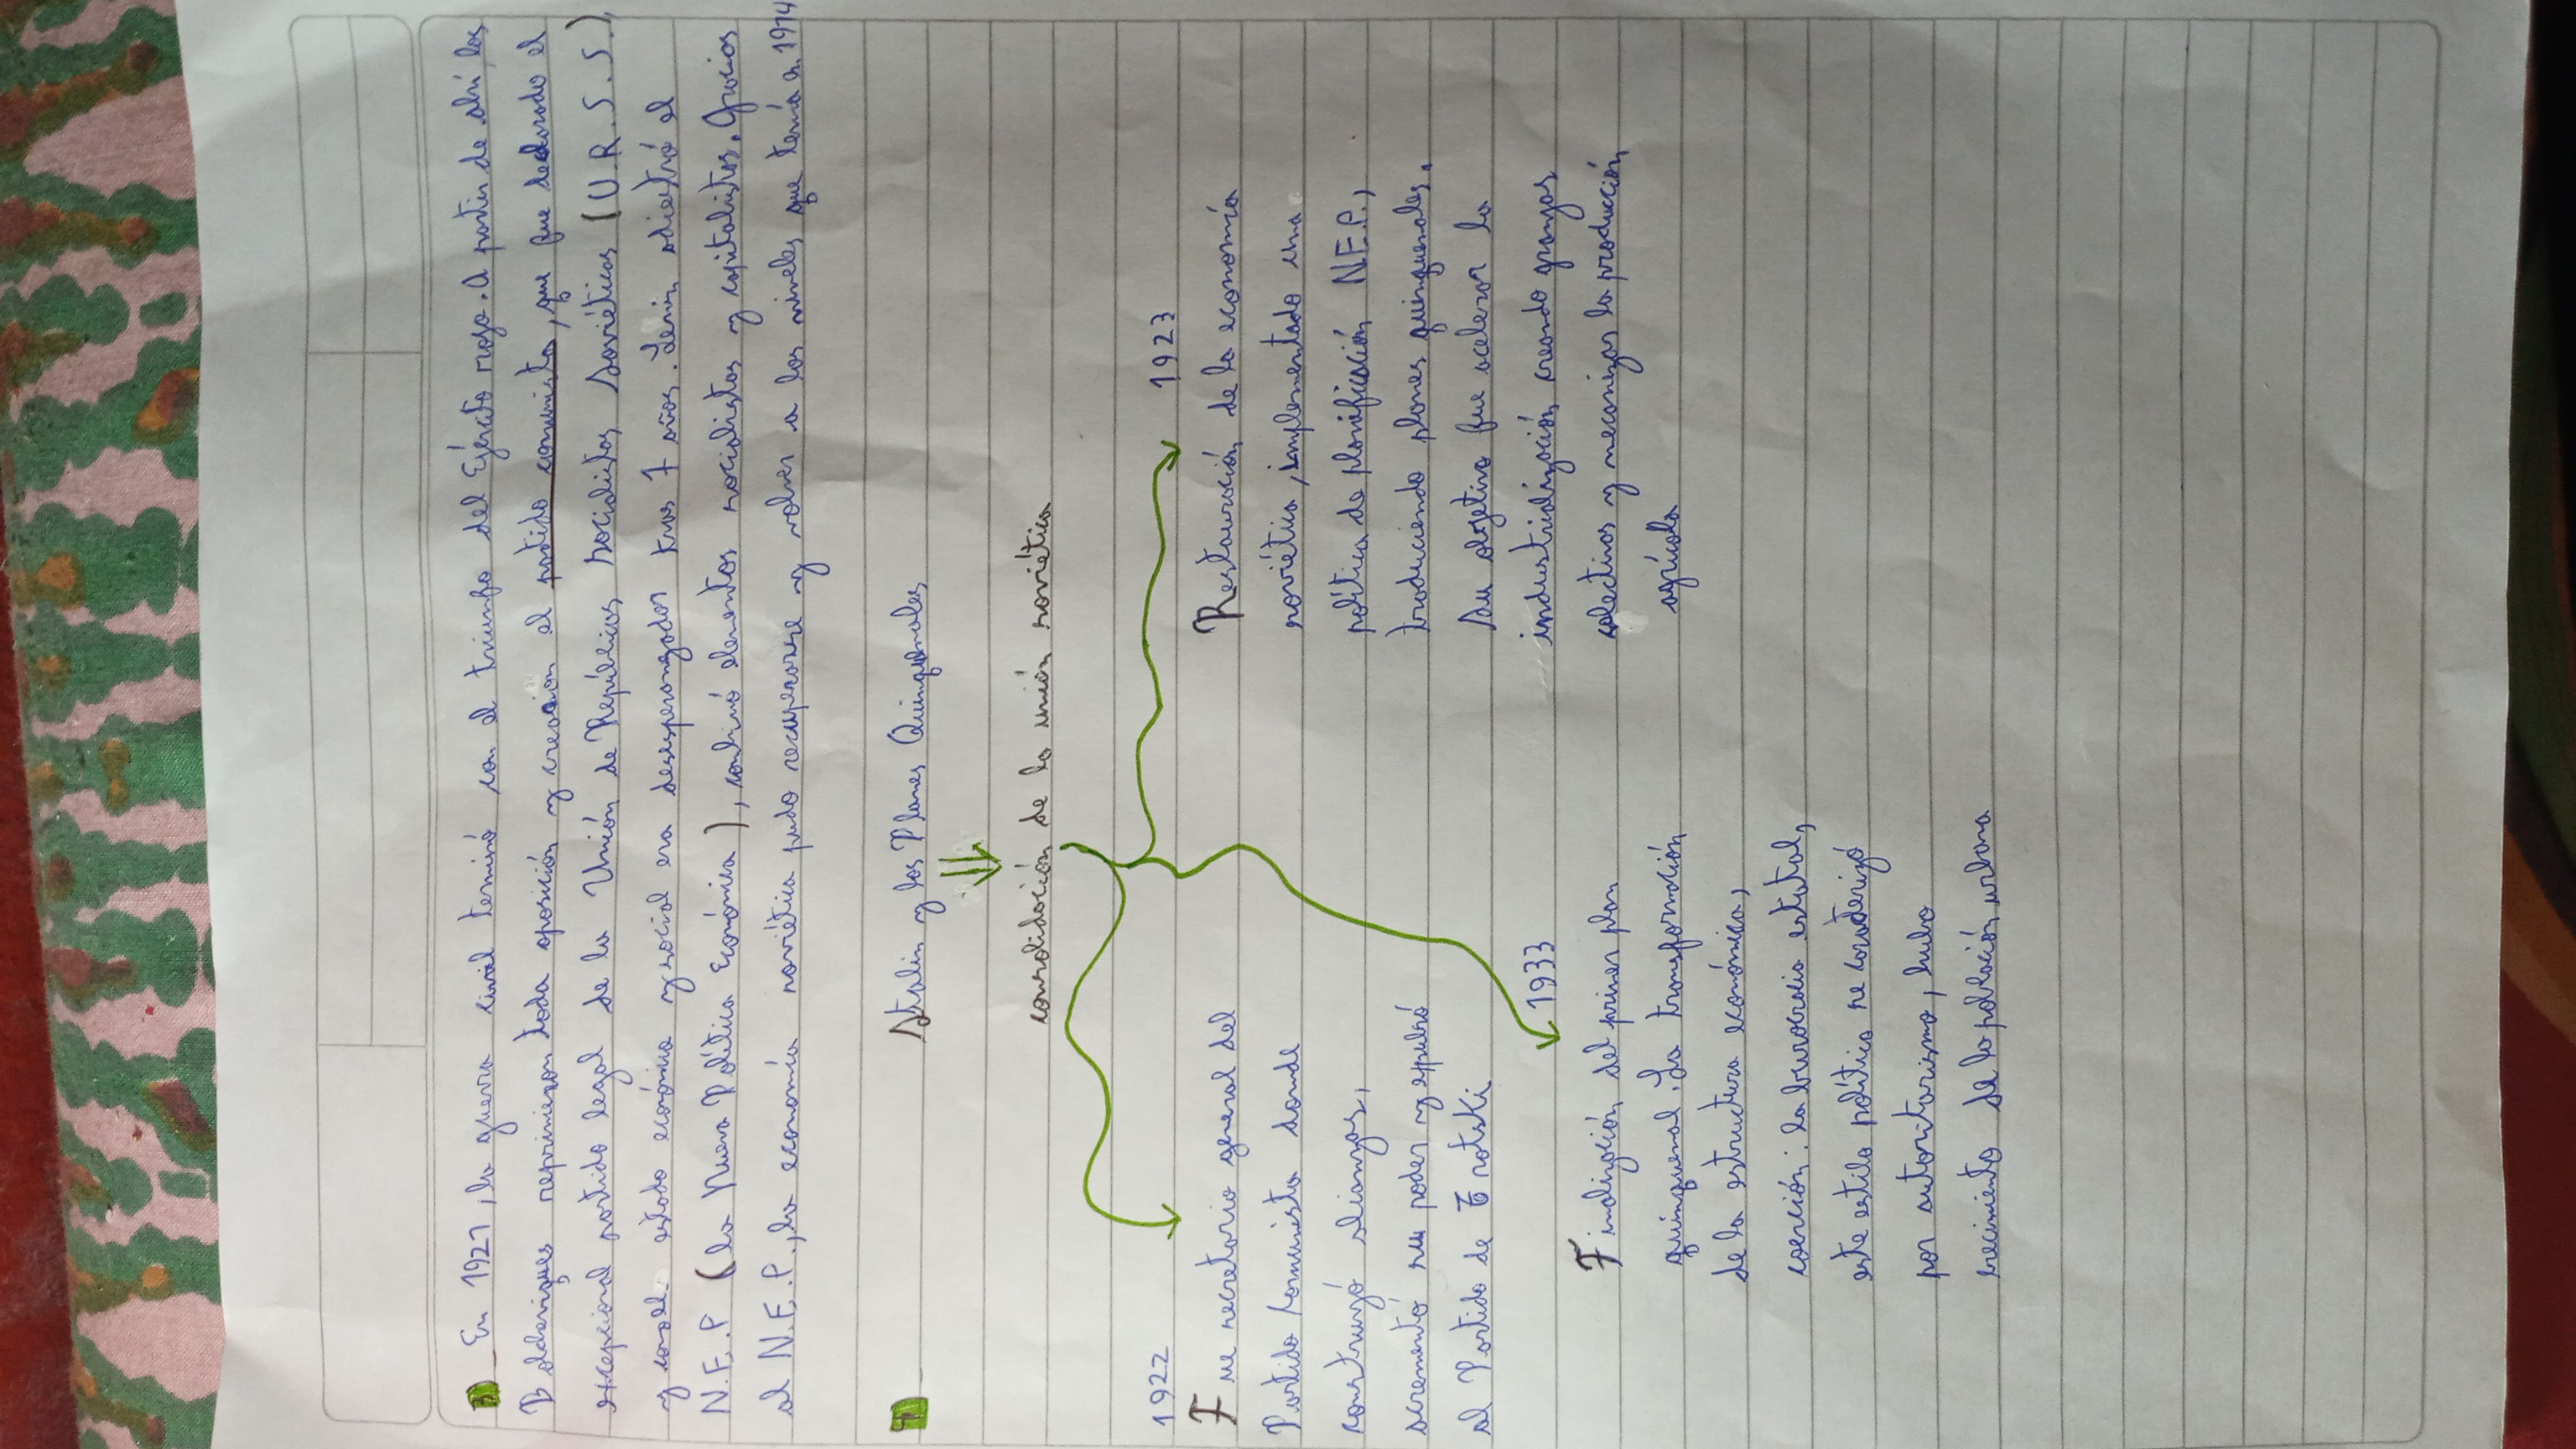 3_ En 1921, la guerra civil terminó con el triunfo del Ejército rojo. A partir de ahí los
Bolcheviques reprimieron toda oposición y crearon el partido comunista, que fue declarado el
excepcional partido legal de la Unión de Repúblicas Socialistas Soviéticas (U.R.S.S.),
y estado económico y social era desesperanzador tras 7 años. Lenin adiestró el
N.E.P (la Nueva Política Económica), combinó elementos socialistas y capitalistas. Gracias
al N.E.P., la economía soviética pudo recuperarse y volver a los niveles que tenía en 1914
4_ Stalin y los Planes Quinquenales
consolidación de la unión soviética
1922
Fue secretario general del
Partido Comunista donde
construyó alianzas,
acrementó su poder y expulsó
al Partido de Trotski
1923
Restauración de la economía
soviética, implementado una
política de planificación N.E.P.,
troduciendo planes quinquenales.
Su objetivo fue acelerar la
industrialización creando granjas
colectivas y mecanizar la producción
agrícola
1933
Finalización del primer plan
quinquenal. La transformación
de la estructura económica,
coerción: la burocracia estatal,
este estilo político se caracterizó
por autoritarismo, hubo
crecimiento de la población urbana